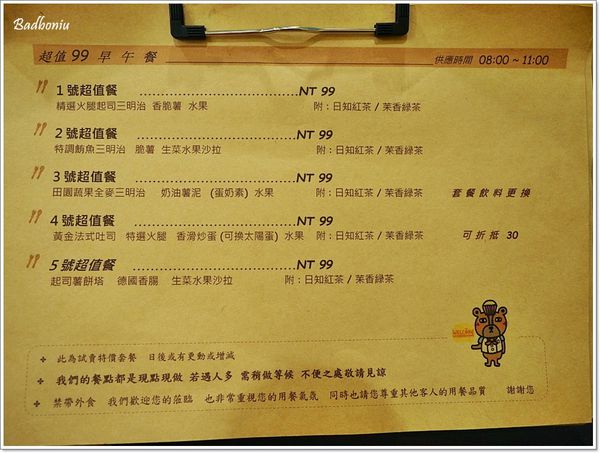 Badboniu
超值 99 早 午 餐 供應時間 08:00 ~ 11:00
1 號超值餐 ........................................NT 99
精選火腿起司三明治 香脆薯 水果 附：日知紅茶 / 茉香綠茶
2 號超值餐 ........................................NT 99
特調鮪魚三明治 脆薯 生菜水果沙拉 附：日知紅茶 / 茉香綠茶
3 號超值餐 ........................................NT 99
田園蔬果全麥三明治 奶油薯泥 (蛋奶素) 水果 附：日知紅茶 / 茉香綠茶 套 餐 飲 料 更 換
4 號超值餐 ........................................NT 99
黃金法式吐司 特選火腿 香滑炒蛋 (可換太陽蛋) 水果 附：日知紅茶 / 茉香綠茶 可 折 抵 30
5 號超值餐 ........................................NT 99
起司薯餅塔 德國香腸 生菜水果沙拉 附：日知紅茶 / 茉香綠茶
WELCOME
+ 此為試賣特價套餐 日後或有更動或增減
+ 我們的餐點都是現點現做 若遇人多 需稍做等候 不便之處敬請見諒
+ 禁帶外食 我們歡迎您的蒞臨 也非常重視您的用餐氣氛 同時也請您尊重其他客人的用餐品質 謝謝您